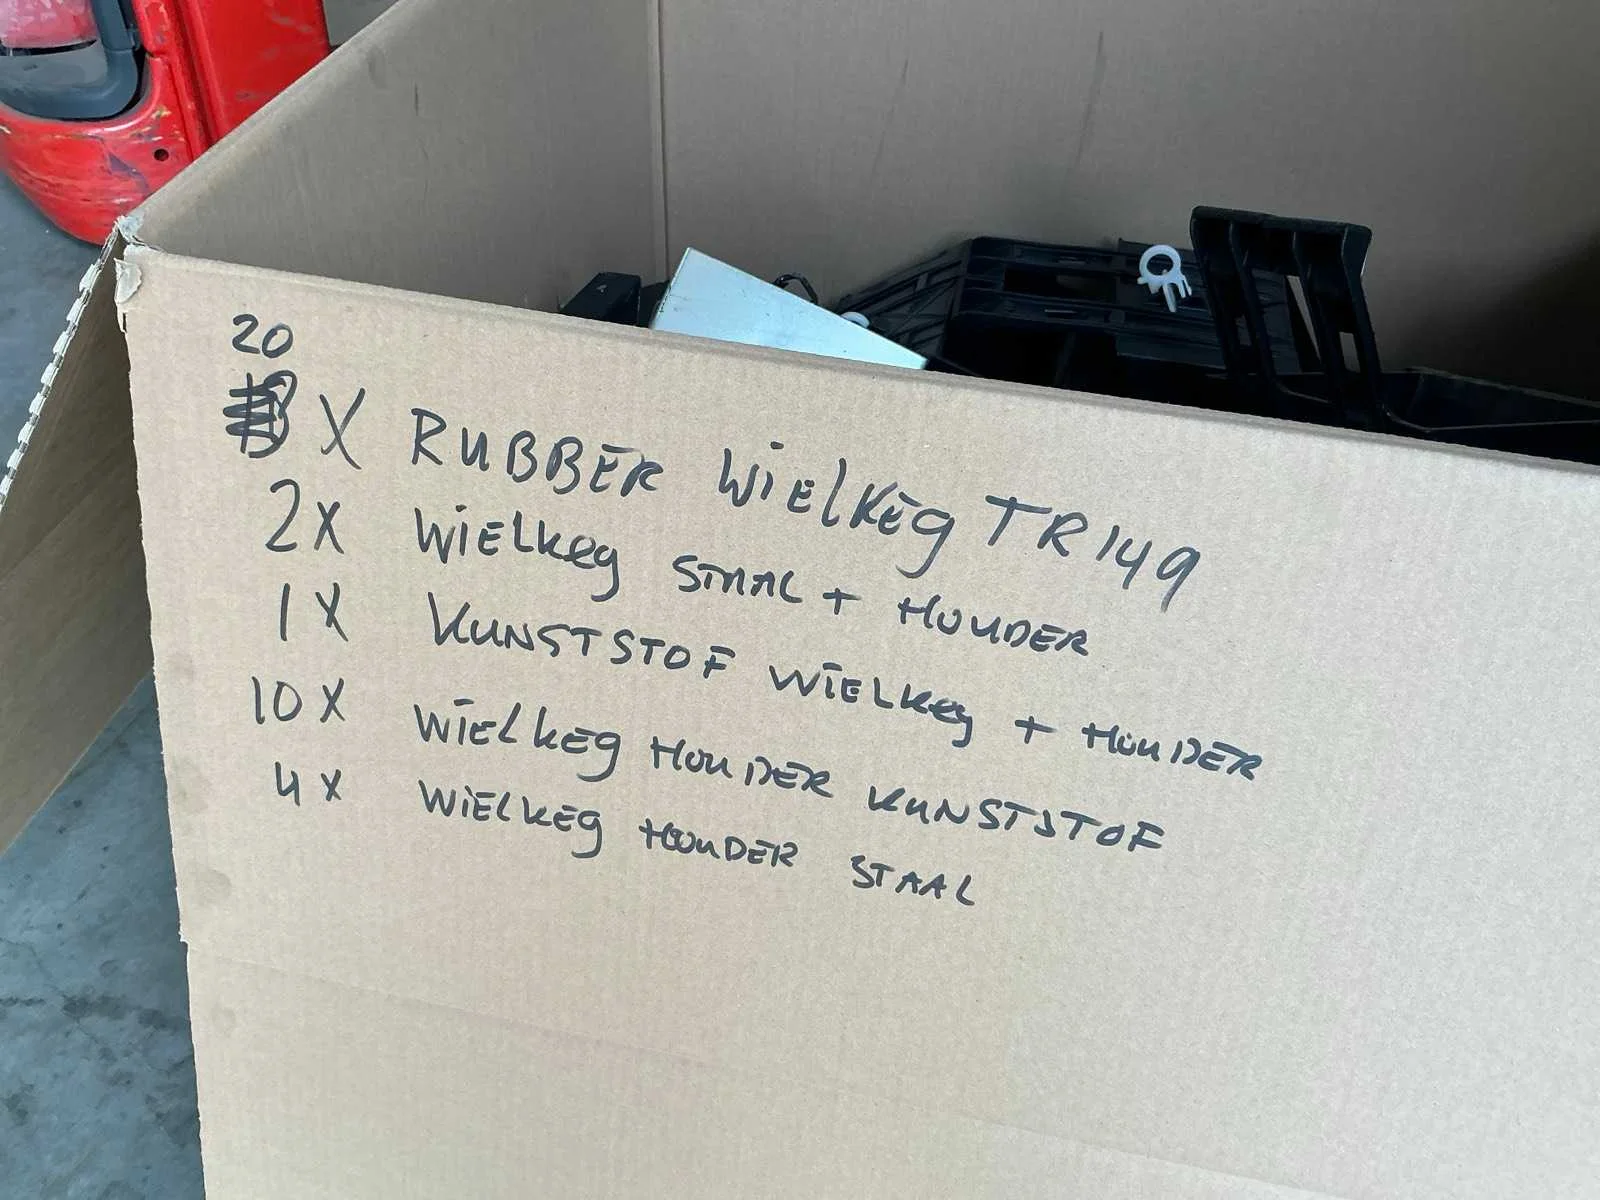 20
X RUBBER WIELKEG TR149
2X WIELKEG STAAL + HOUDER
1X KUNSTSTOF WIELKEG + HOUDER
10X WIELKEG HOUDER KUNSTSTOF
4X WIELKEG HOUDER STAAL